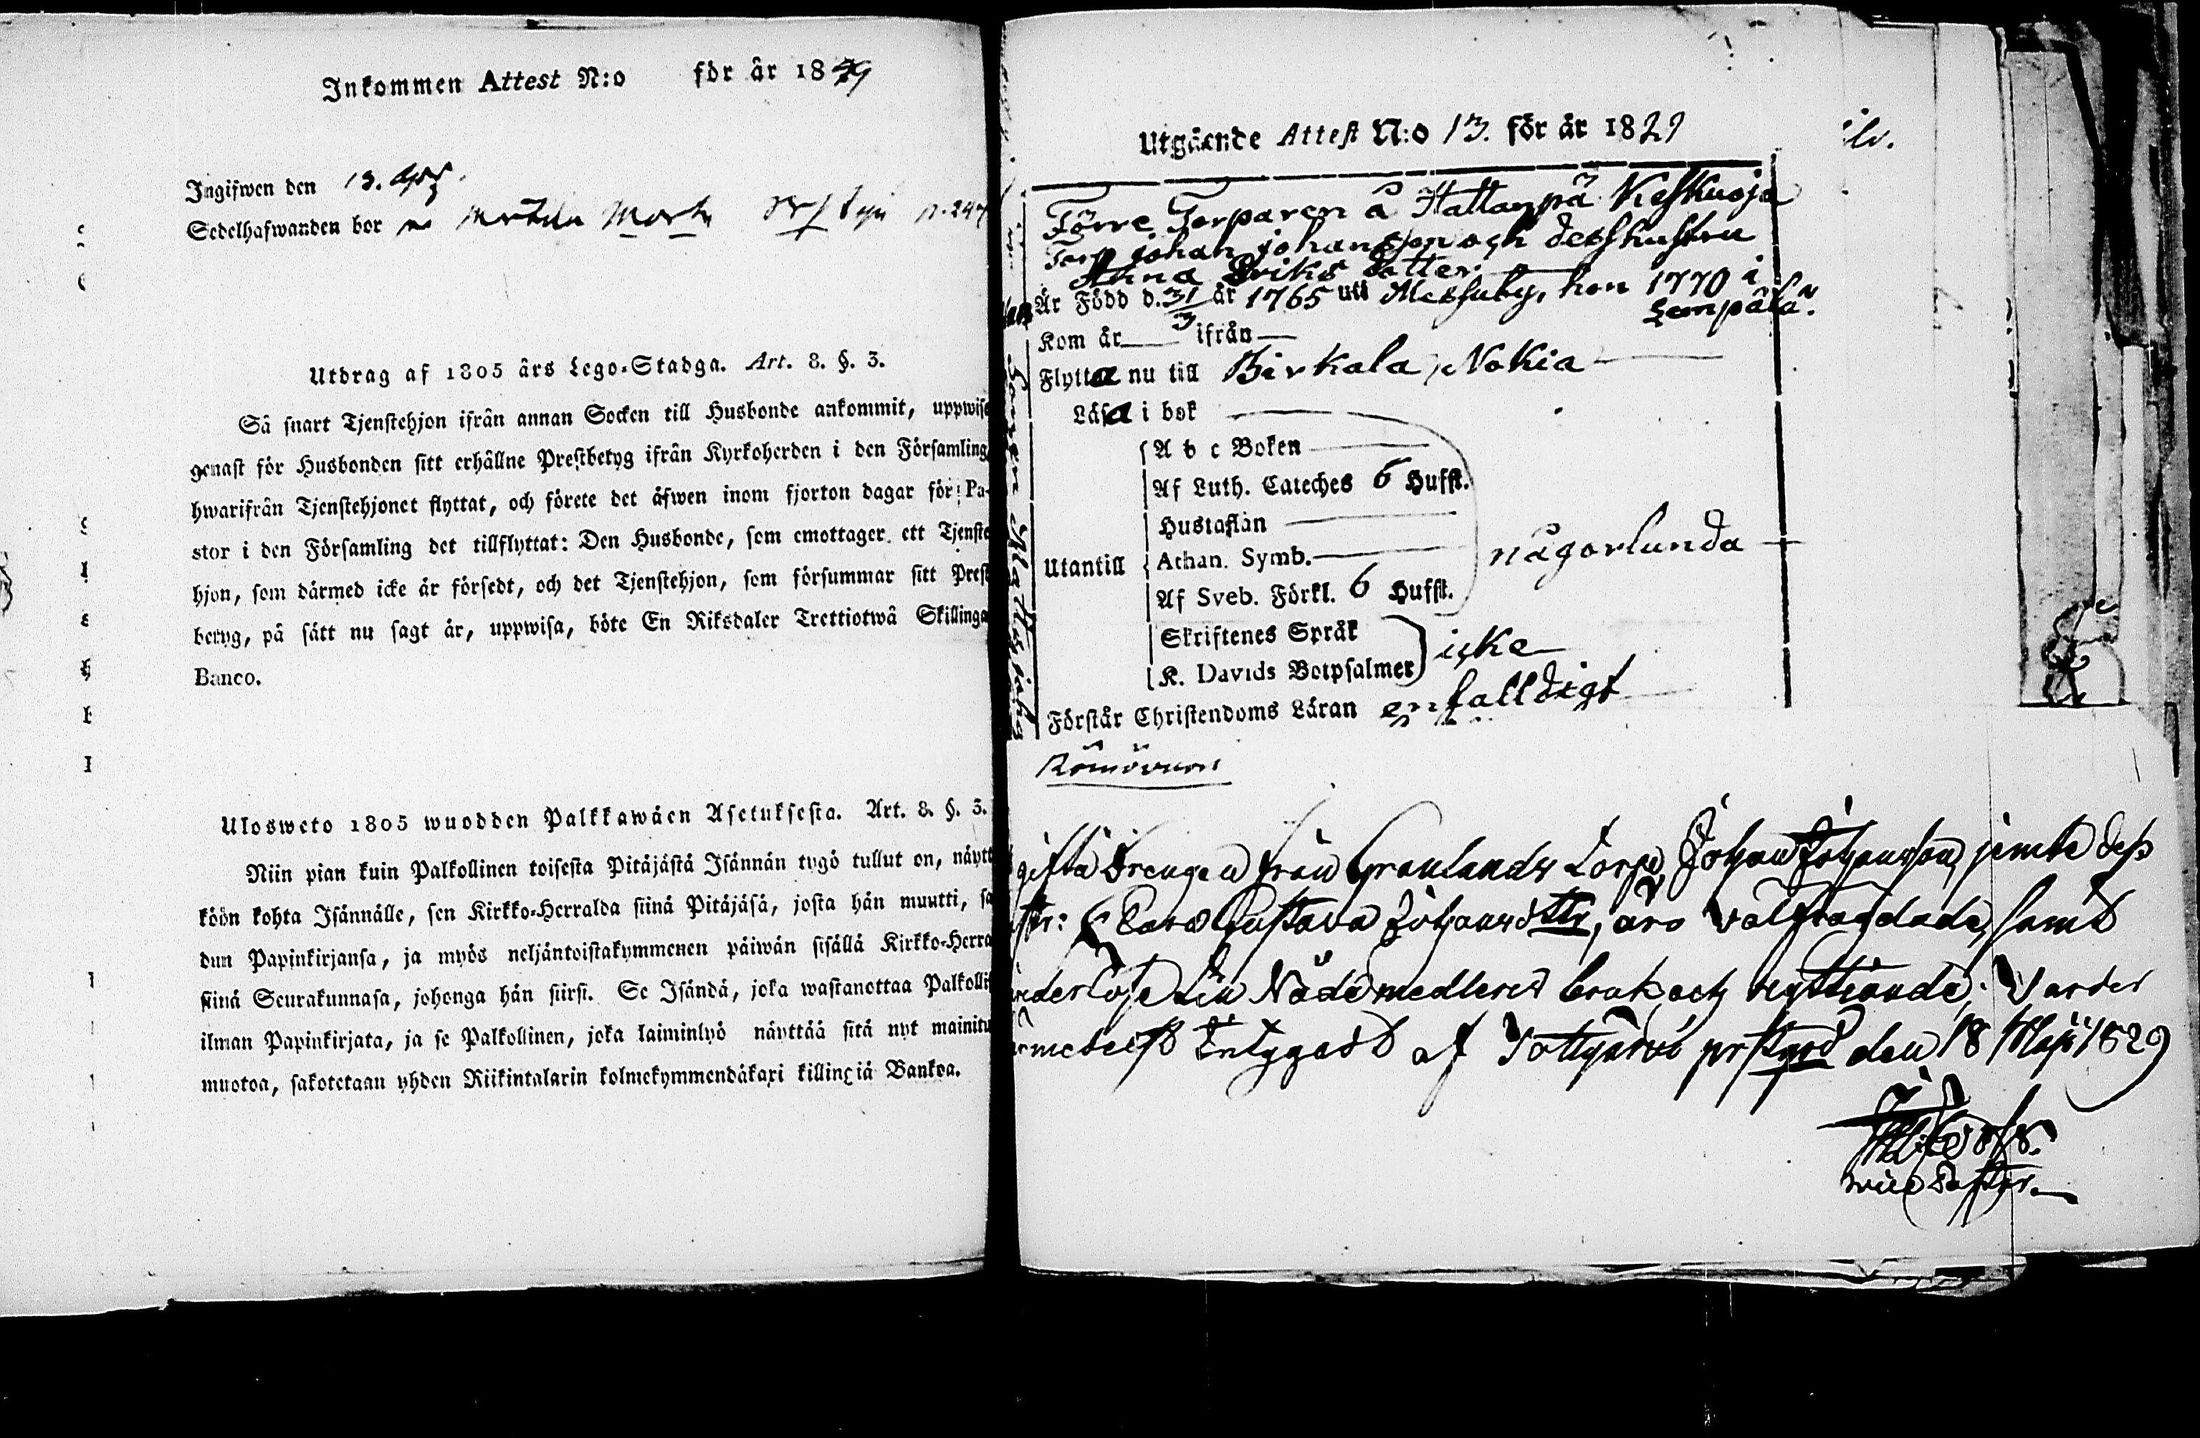 Inkommen Attest N:o för år 1829
Ingifwen den 13.
Sedelhafwanden bor
Utdrag af 1805 års Lego-Stadga. Art. 8. §. 3.
Så snart Tjenstehjon ifrån annan Socken till Husbonde ankommit, uppwise
genast för Husbonden sitt erhållne Prestbetyg ifrån Kyrkoherden i den Församling
hwarifrån Tjenstehjonet flyttat, och förete det äfwen inom fjorton dagar för Pa-
stor i den Församling det tillflyttat: Den Husbonde, som emottager ett Tjenste
hjon, som därmed icke är försedt, och det Tjenstehjon, som försummar sitt Prest
betyg, på sätt nu sagt är, uppwisa, böte En Riksdaler Trettiotwå Skillingar
Banco.
Ulosweto 1805 wuodden Palkkawäen Asetuksesta. Art. 8. §. 3.
Niin pian kuin Palkollinen toisesta Pitäjästä Isännän tygö tullut on, näytt
köön kohta Isännälle, sen Kirkko-Herralda siinä Pitäjäsä, josta hän muutti, sa
dun Papinkirjansa, ja myös neljäntoistakymmenen päiwän sisällä Kirkko-Herra
siinä Seurakunnasa, johonga hän siirsi. Se Isändä, joka wastanottaa Palkollis
ilman Papinkirjata, ja se Palkollinen, joka laiminlyö näyttää sitä nyt mainitu
muotoa, sakotetaan yhden Riikintalarin kolmekymmendäkaxi killingiä Bankoa.
Utgående Attest N:o 13. för år 1829
Förre Torparen å Hattanpä Keskuoja
Torp Johan Johansson och dess hustru
Anna Eriks dotter
Är Född d. 31/3 år 1765 uti Messuby, hon 1770 i
Lempälä.
Kom år ifrån
Flytta nu till Birkala, Nokia
Läsa i bok
A b c Boken
Af Luth. Cateches 6 Hufst.
Hustaflan
Utantill Athan. Symb. någorlunda
Af Sveb. Förkl. 6 Hufst.
Skriftenes Språk
K. Davids Botpsalmer icke
Förstår Christendoms Läran enfalldigt
gifta Drengen från Graulands Torp, Johan Johansson, jemte dess
Gustava Johansdttr, äro välfrägdade, samt
Nådemedlens bruk och nyttiande; Varder
Intygadt af Tottijärvi prstgrd den 18 Maji 1829
vice Pastor.